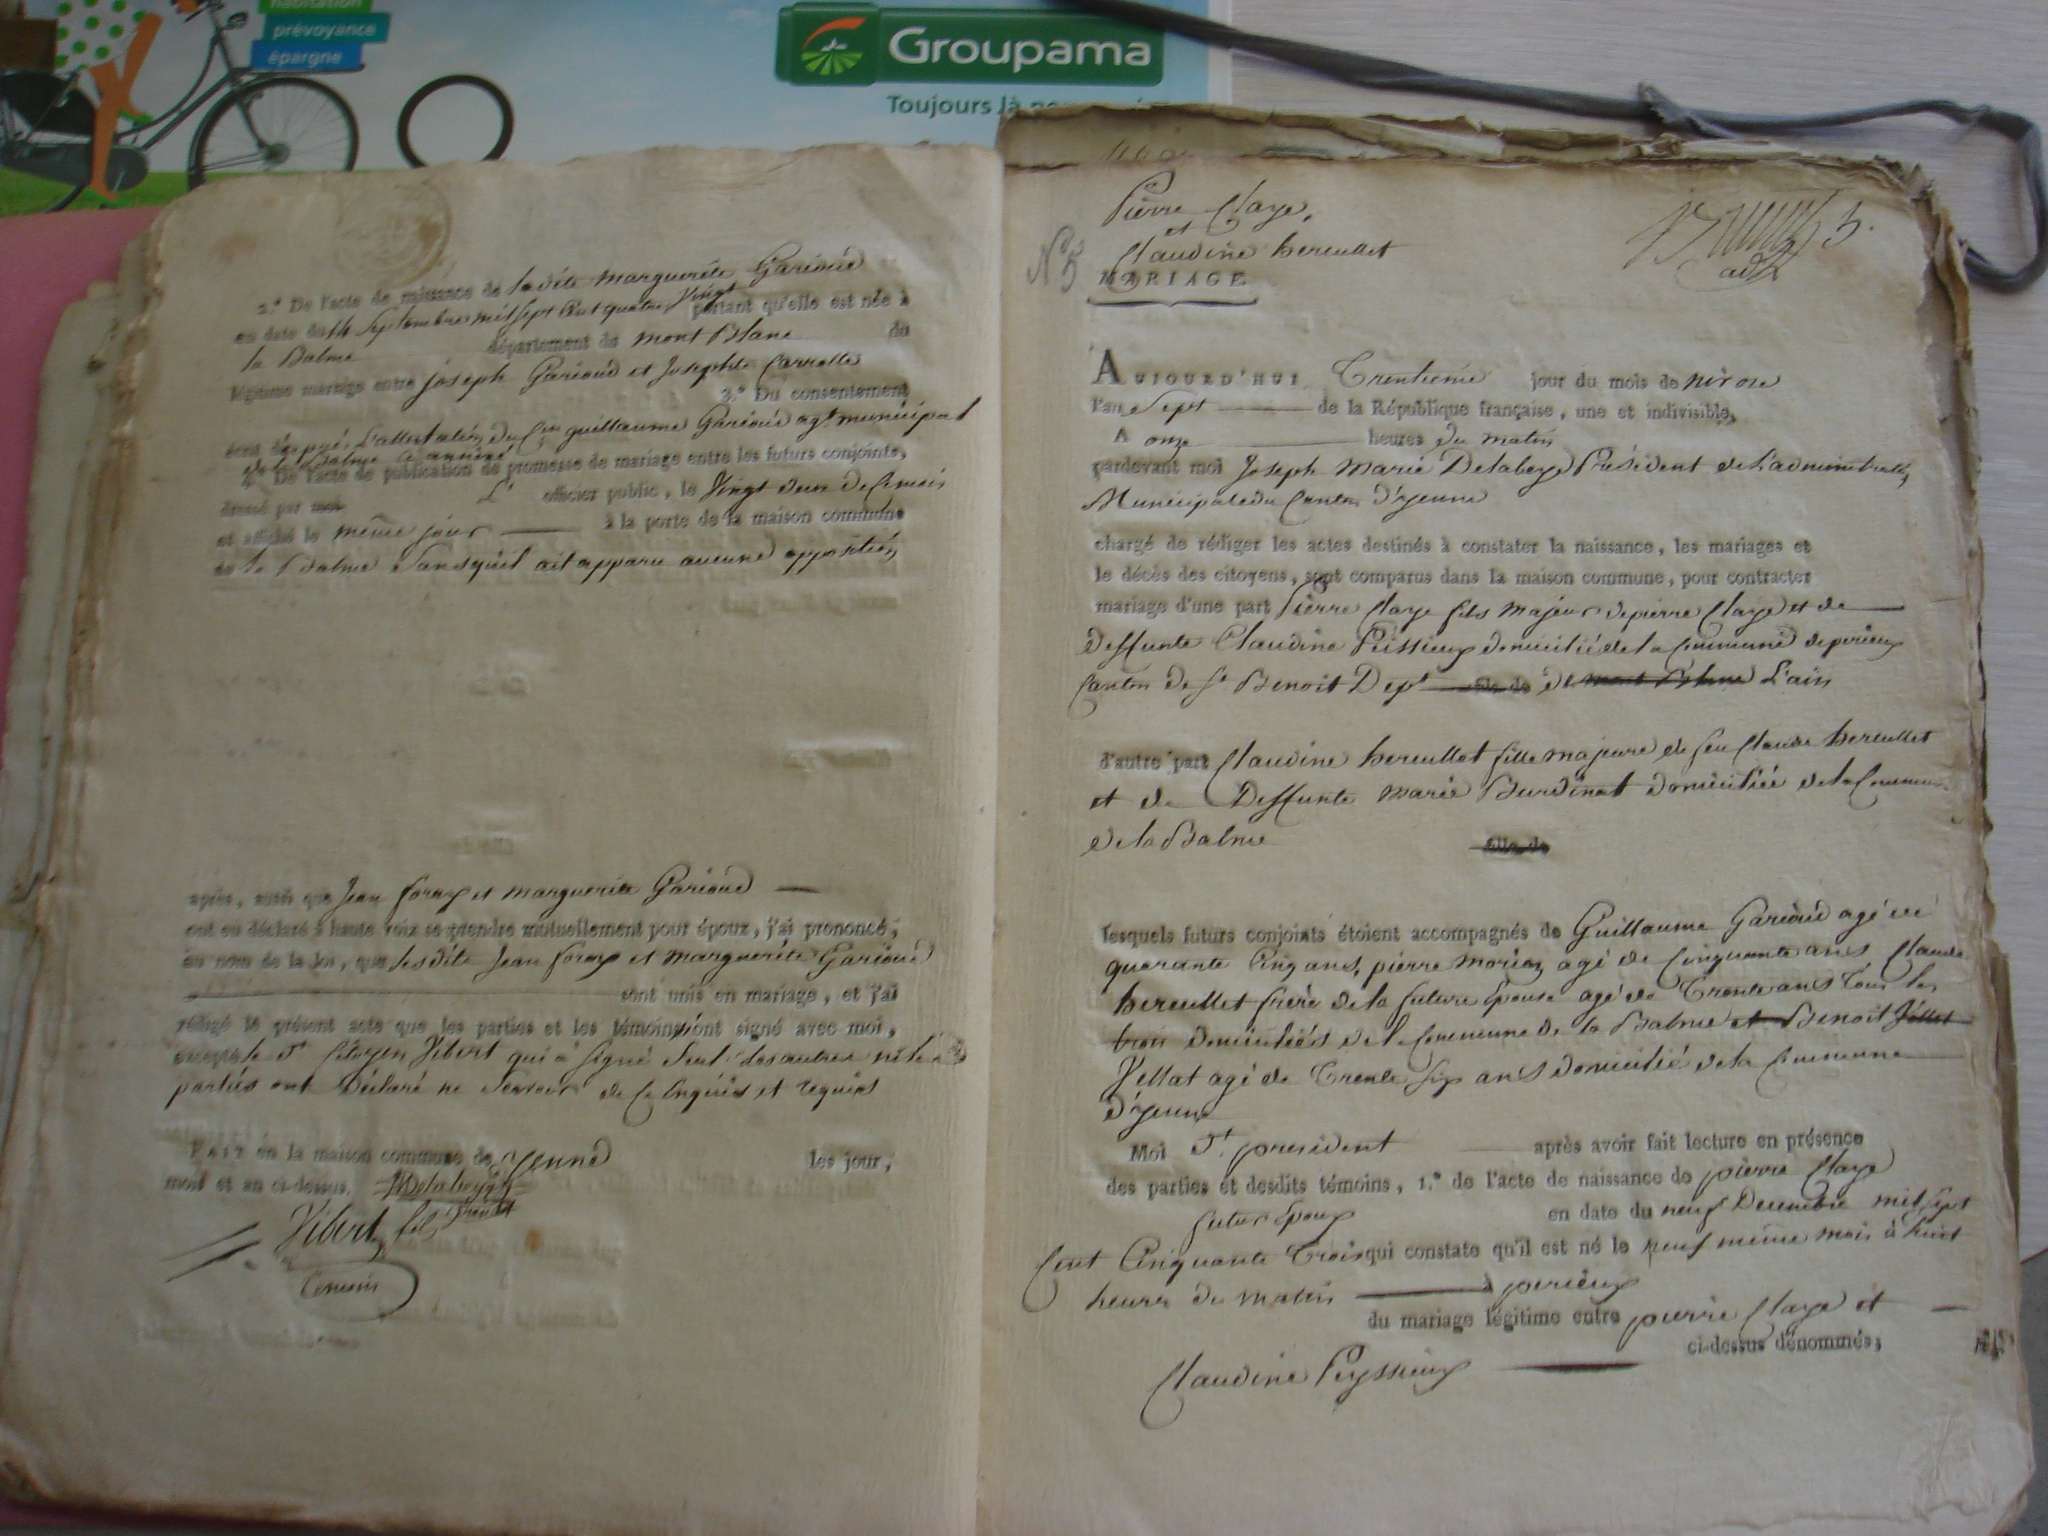 habitation
prévoyance
épargne
Groupama
Toujours là
2.° De l'acte de naissance de ladite marguerite Garioud
en date du 14 Septembre mil sept Cent quatre Vingt portant qu'elle est née à
la Balme département de mont Blanc du
légitime mariage entre joseph Garioud et Josephte Carrelle
3.° Du consentement
L'attestation du Cen guillaume Garioud agt municipal
de la Balme
4.° De l'acte de publication de promesse de mariage entre les futurs conjoints,
dressé par moi L' officier public, le Vingt deux de Ce mois
et affiché le même jour à la porte de la maison commune
de la Balme Sansquil ait apparu aucune opposition
après, aussi que Jean foray et marguerite Garioud
ont eu déclaré à haute voix se prendre mutuellement pour époux, j'ai prononcé,
au nom de la loi, que lesdits Jean foray et marguerite Garioud
sont unis en mariage, et j'ai
rédigé le présent acte que les parties et les témoins ont signé avec moi,
excepté le dt Citoyen Vibert qui à Signé Seul des autres
parties ont déclaré ne Scavoir de Ce Enquis et requis
FAIT en la maison commune de yenne les jour,
mois et an ci-dessus. JMDelabeye
Vibert fils Presidt
temoin
Pierre Claye
et
Claudine hereullet
N° 5
MARIAGE
5.
AUJOURD'HUI Trentieme jour du mois de nivose
l'an Sept de la République française, une et indivisible,
A onze heures du matin
pardevant moi Joseph Marie Delabeye Président de Ladministration
Municipale du Canton d'yenne
chargé de rédiger les actes destinés à constater la naissance, les mariages et
le décès des citoyens, sont comparus dans la maison commune, pour contracter
mariage d'une part Pierre Claye fils majeur de pierre Claye et de
deffunte Claudine Peissieux domicilié de la Commune de perieux
Canton de St Benoit Dept fils de de mont Blanc L'ain
d'autre part Claudine hereullet fille majeure de feu Claude hereullet
et de Deffunte Marie Burdinat domiciliée de la Commune
de la Balme fille de
lesquels futurs conjoints étoient accompagnés de Guillaume Garioud agé de
quarante Cinq ans, pierre Morion agé de Cinquante ans, Claude
hereullet frère de la future Epouse agé de Trente ans tous les
trois domiciliés de la Commune de la Balme et Benoit Vellet
Vellat agé de Trente Six ans domicilié de la Commune
d'yenne
Moi dt président après avoir fait lecture en présence
des parties et desdits témoins, 1.° de l'acte de naissance de pierre Claye
futur Epoux en date du neuf Decembre mil Sept
Cent Cinquante trois qui constate qu'il est né le neuf meme mois à huit
heures du matin à perieux
du mariage légitime entre pierre Claye et
Claudine Peyssieux ci-dessus dénommés;